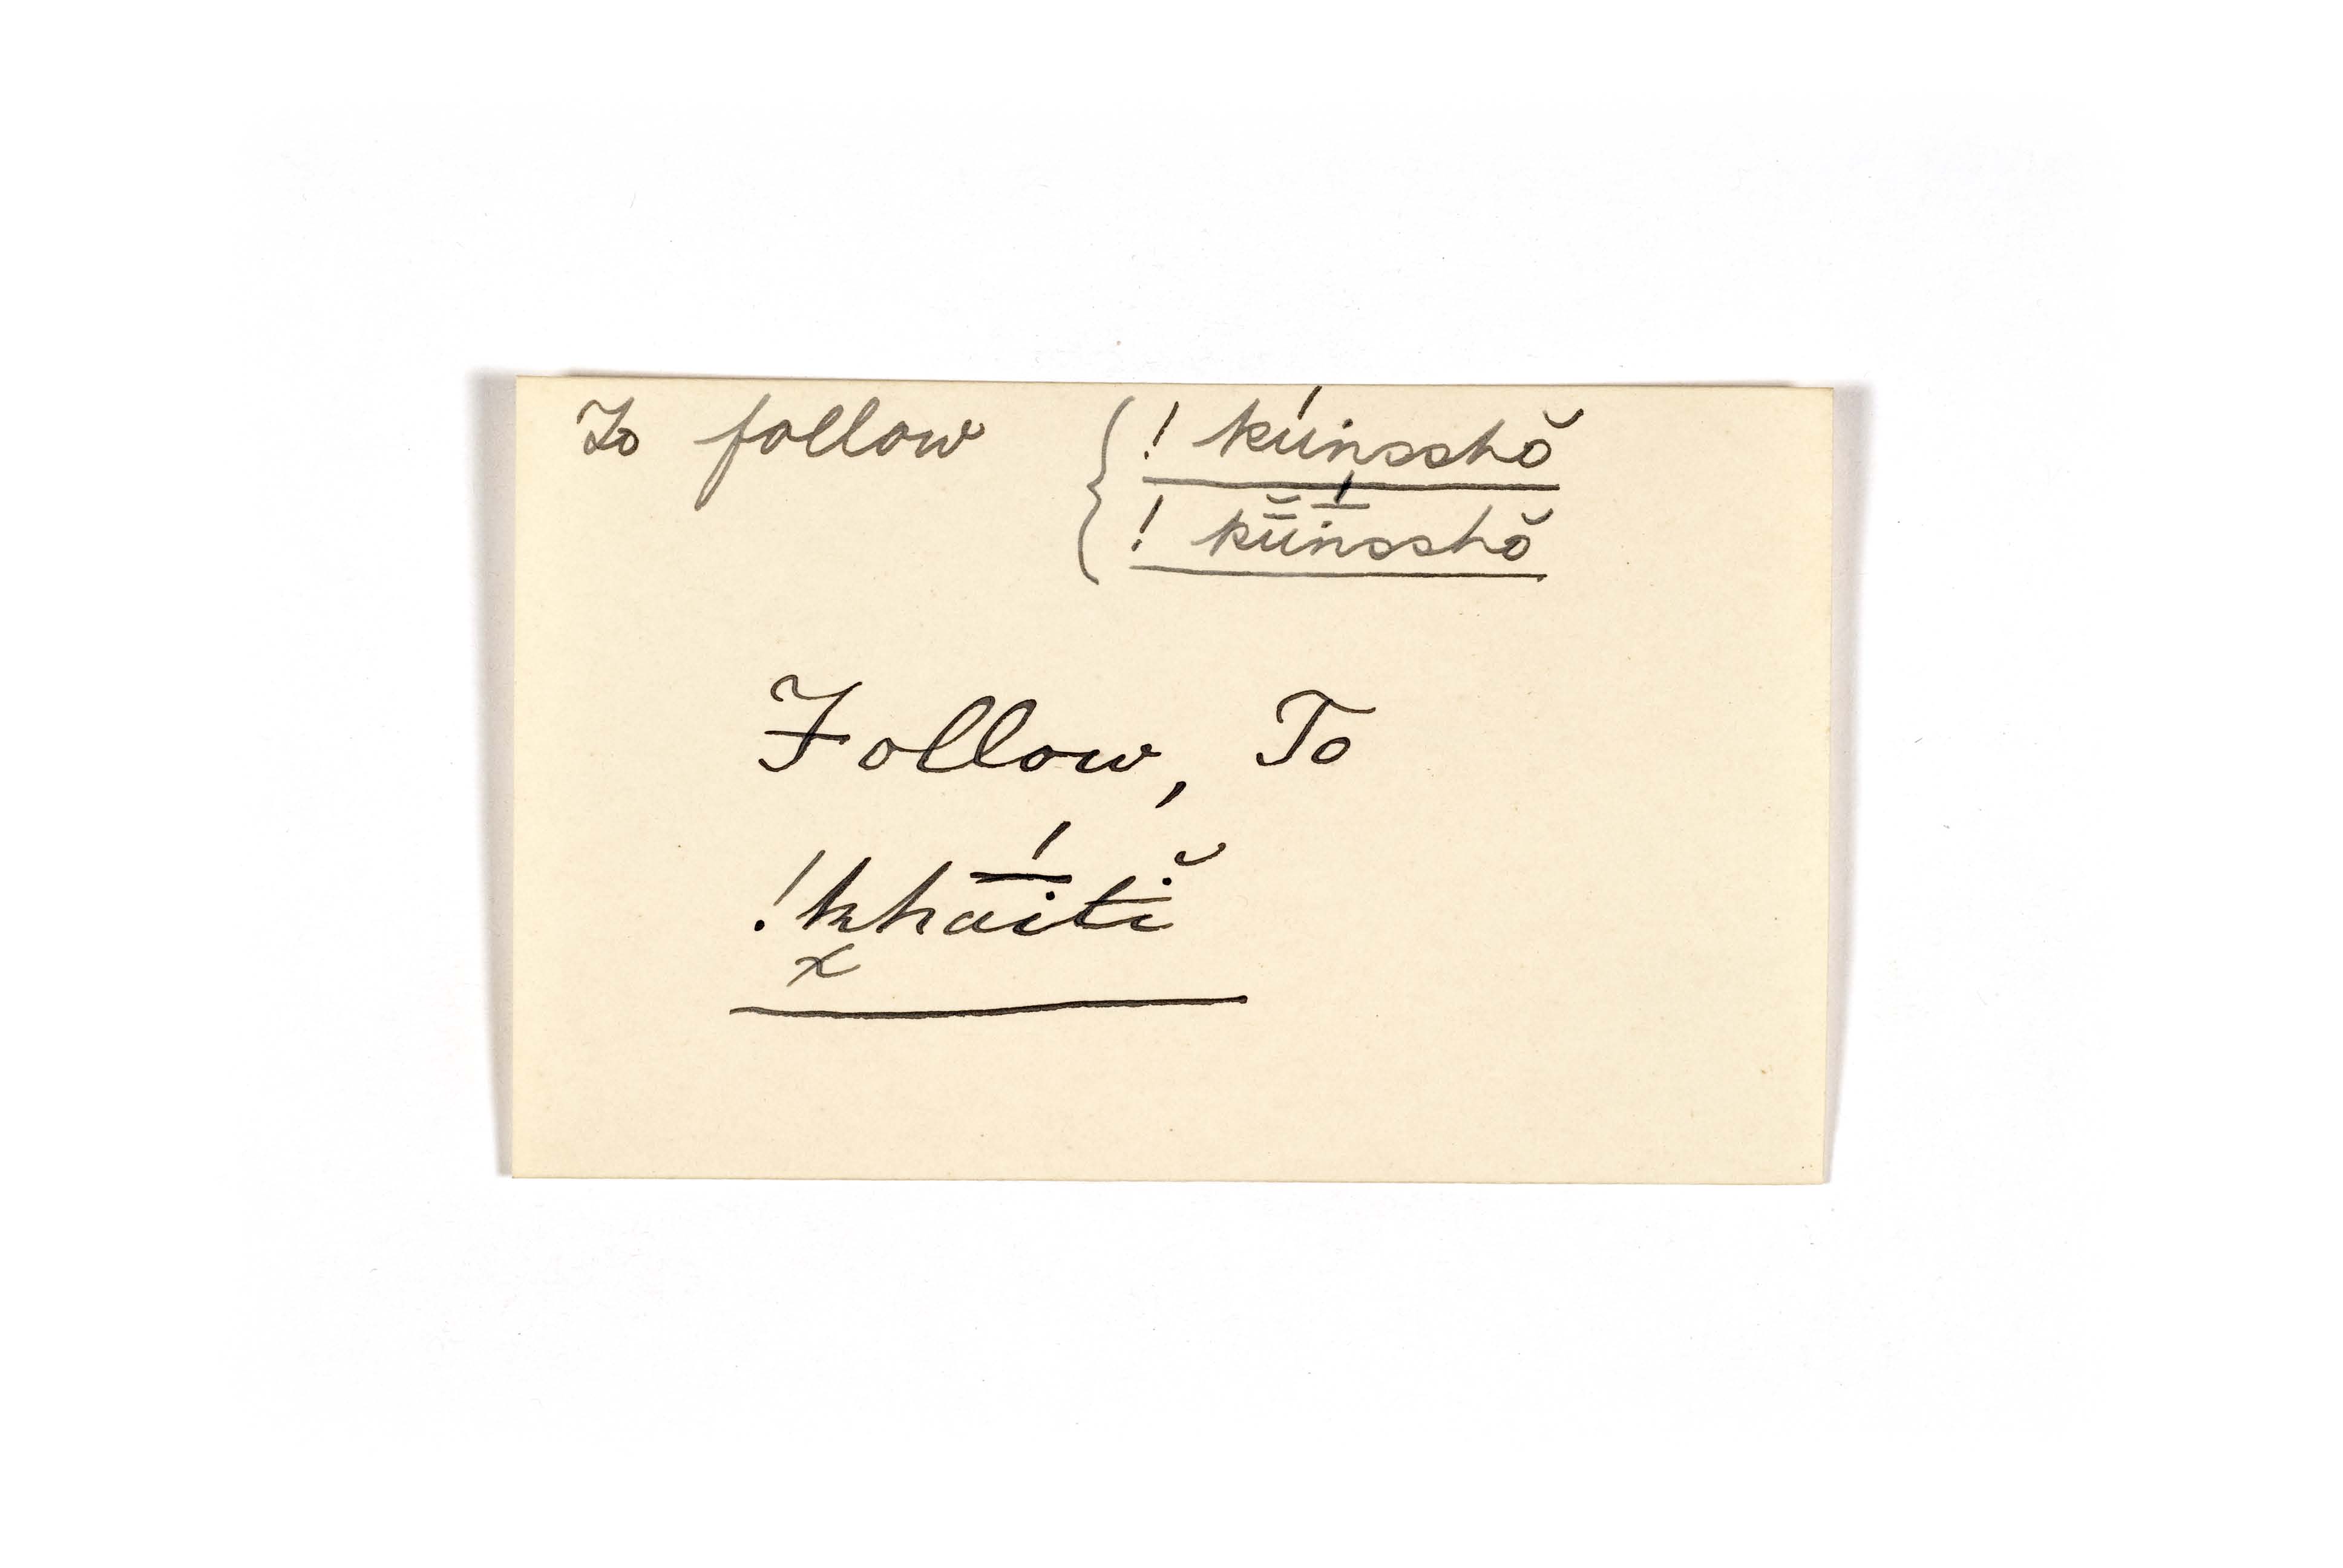 To follow { ! kúinsshŏ
! kṵ̆̄ī́nsshŏ
Follow, To
!khaī́tĭ
x